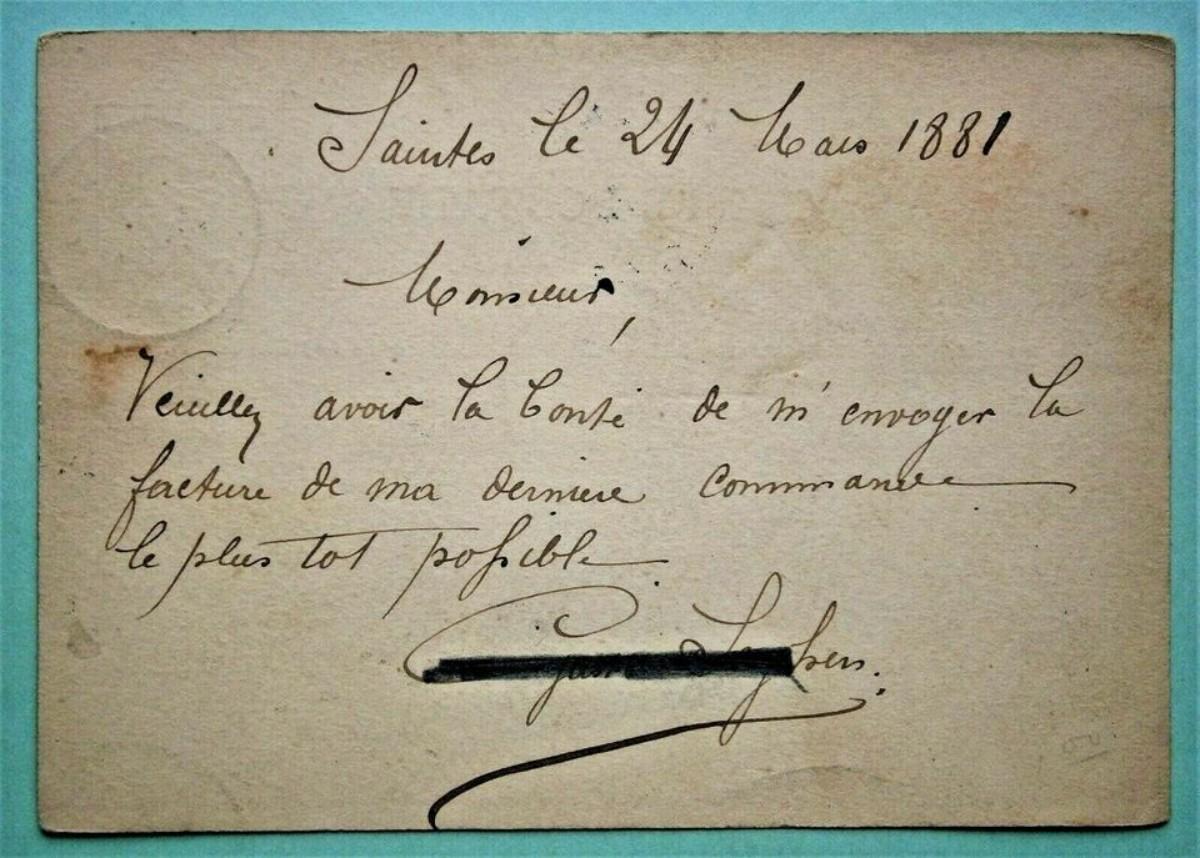 Saintes le 24 Mars 1881
Monsieur,
Veuillez avoir la bonté de m'envoyer la
facture de ma derniere commande
le plus tot possible